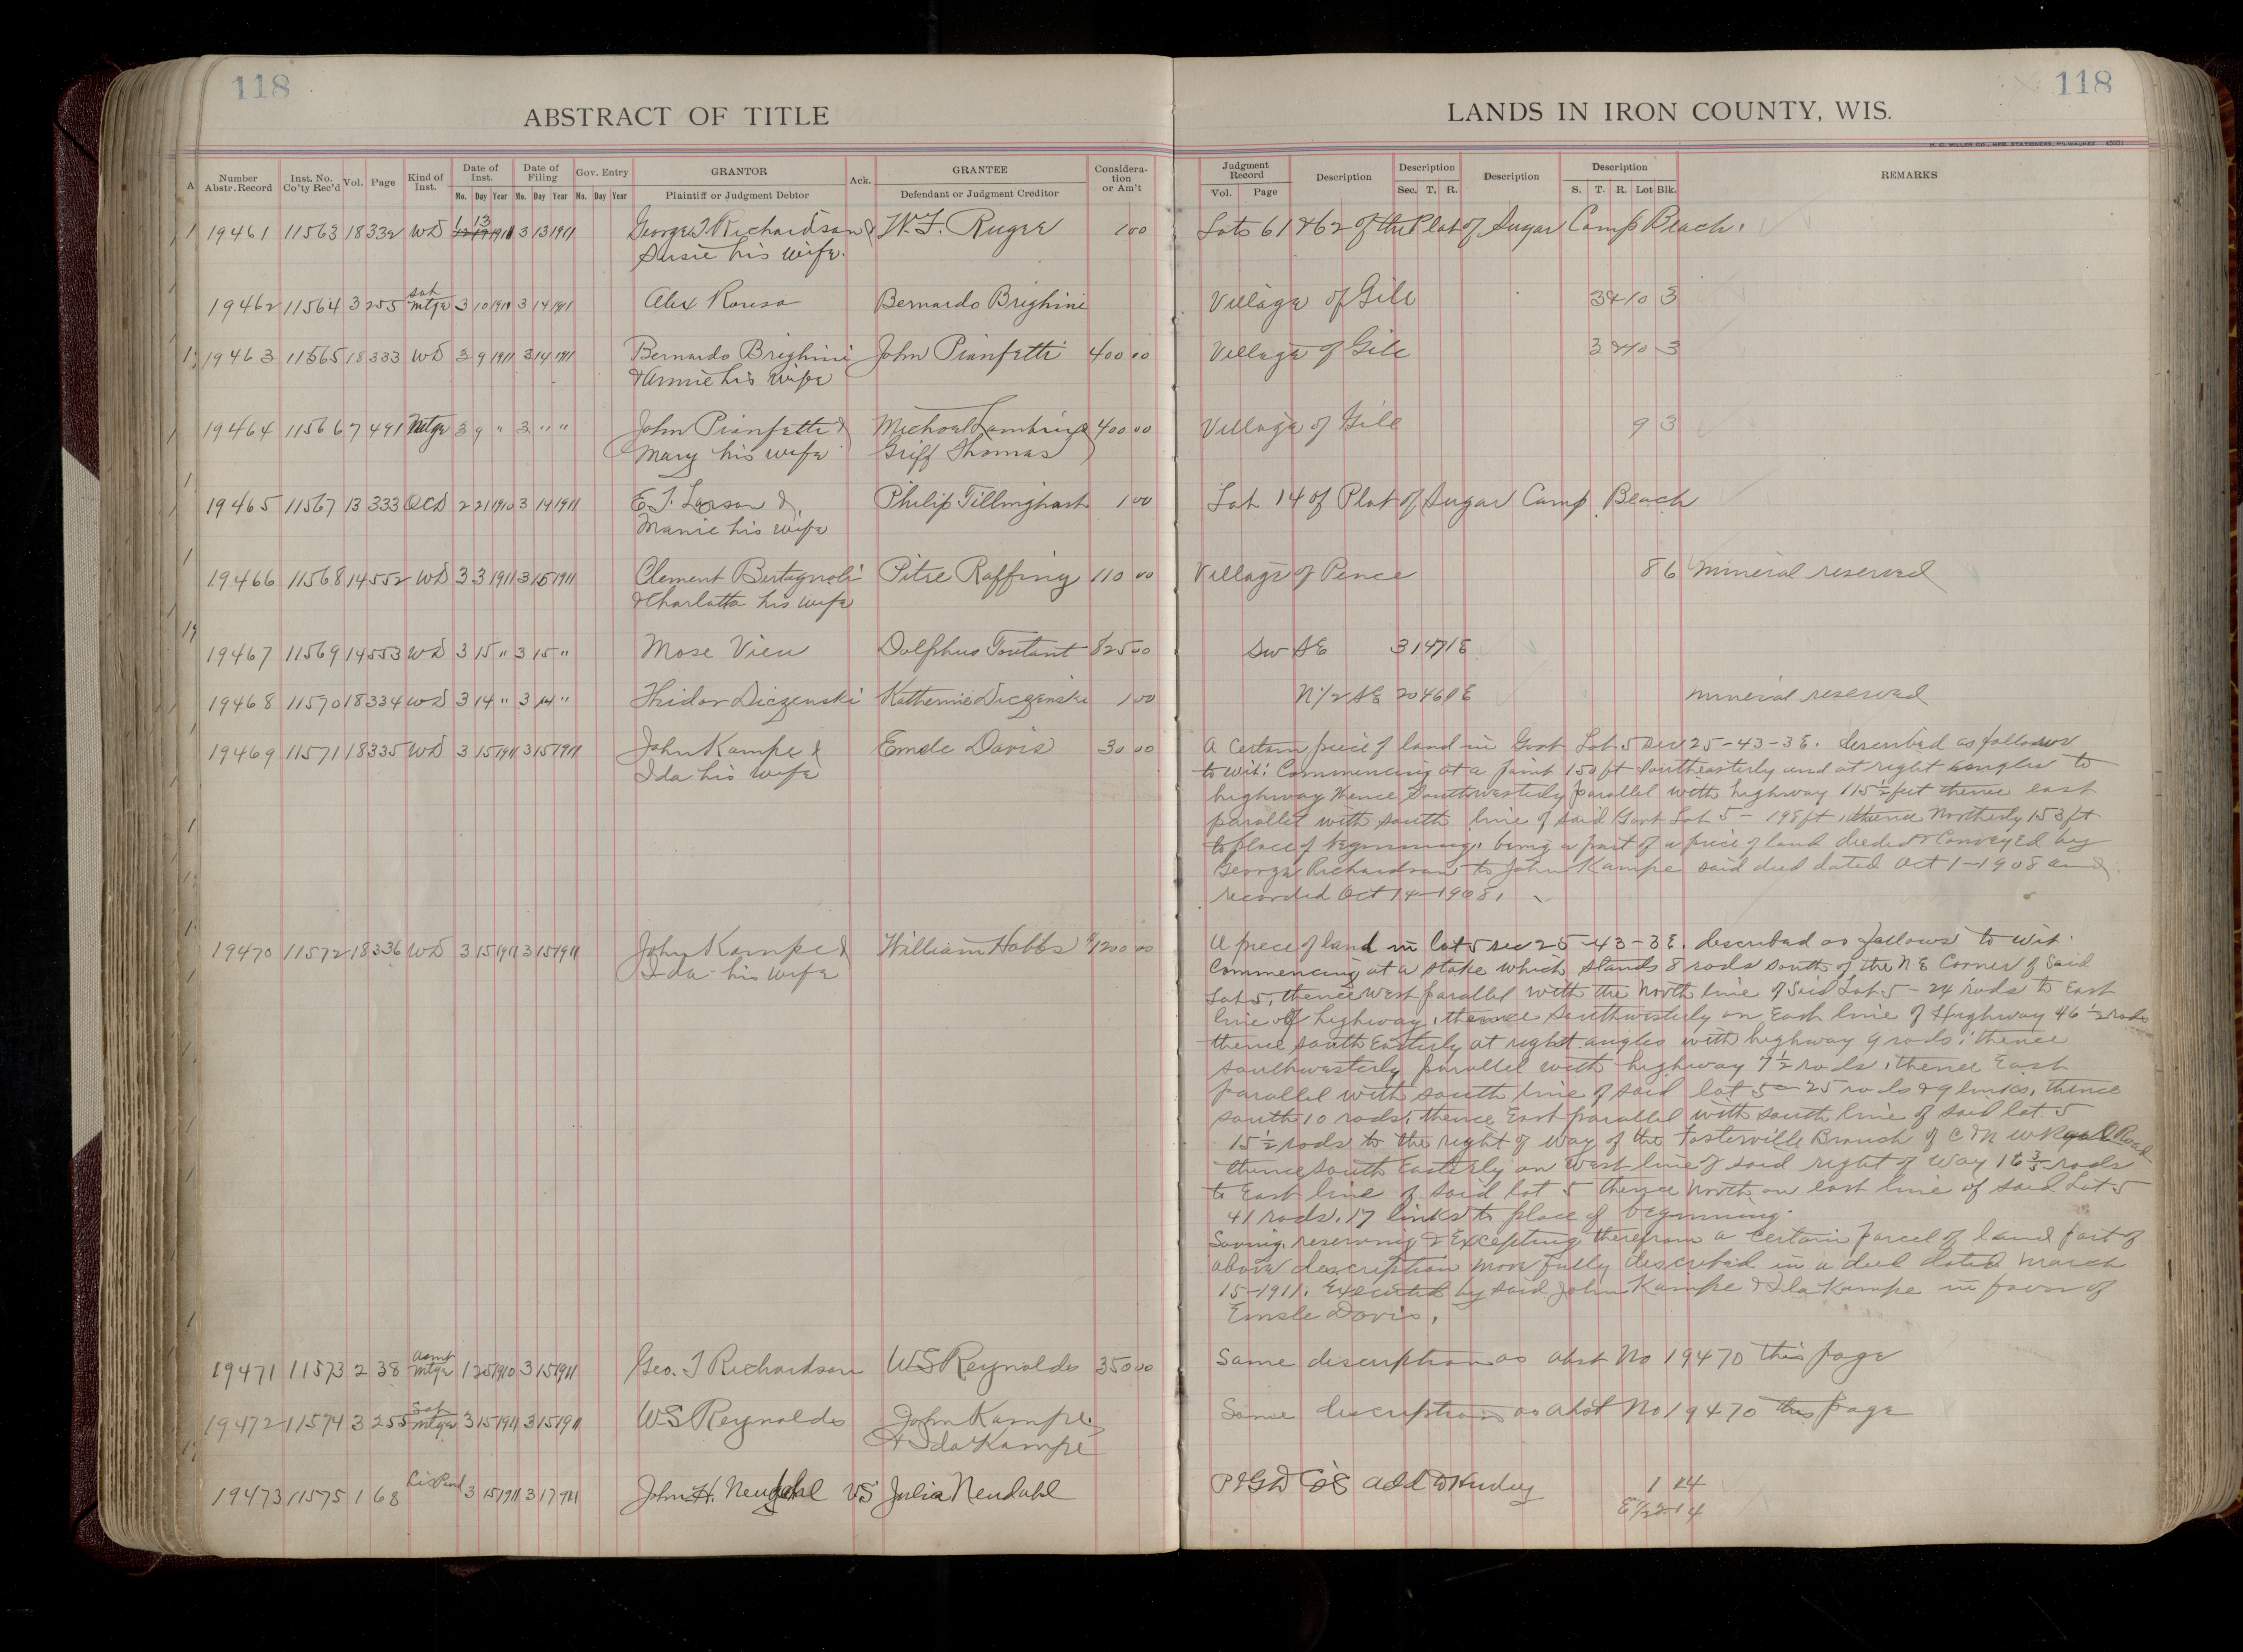 118
118
ABSTRACT OF TITLE
LANDS IN IRON COUNTY, WIS.
H. G. MILLER CO., MFG. STATIONERS, MILWAUKEE
Number Abstr. Record Inst. No. Co'ty Rec'd Vol. Page Kind of Inst. Date of Inst. Mo. Day Year Date of Filing Mo. Day Year Gov. Entry Mo. Day Year GRANTOR Plaintiff or Judgment Debtor Ack. GRANTEE Defendant or Judgment Creditor Considera- tion or Am't
Judgment Record Vol. Page Description Description Sec. T. R. Description Description S. T. R. Lot Blk. REMARKS
19461 11563 18 332 WD 1 13 3 13 1911 George T Richardson & W. F. Ruger 1 00 Lots 61 & 62 of the Plat of Sugar Camp Beach.
Susie his wife.
19462 11564 3 255 Sat Mtge 3 10 1911 3 14 1911 Alex Rousa Bernardo Brighini Village of Gile 3 & 10 3
19463 11565 18 333 WD 3 9 1911 3 14 1911 Bernardo Brighini John Pianfetti 400 00 Village of Gile 3 & 10 3
& Annie his wife
19464 11566 7 491 Mtge 3 9 " 3 " " John Pianfetti & 400 00 Village of Gile 9 3
Mary his wife Griff Thomas
19465 11567 13 333 QCD 2 21 1910 3 14 1911 E. T. Larson & Philip Tillinghast 1 00 Lot 14 of Plat of Sugar Camp Beach
Mamie his wife
19466 11568 14 552 WD 3 3 1911 3 15 1911 Clement Bertagnoli Pitre Raffing 110 00 Village of Pence 8 6 Mineral reserved
& Charlotta his wife
19467 11569 14 553 WD 3 15 " 3 15 " Mose Vieu Dolphus Toutant 825 00 SW SE 3 147 1E
19468 11570 18 334 WD 3 14 " 3 14 " Diczenski Katherine Diczenski 1 00 N 1/2 SE 20 46 1E Mineral reserved
19469 11571 18 335 WD 3 15 1911 3 15 1911 John Kampe & Emsle Davis 30 00 A Certain piece of land in Govt Lot 5 Sec 25-43-3E. described as follows
Ida his wife to wit: Commencing at a point 150 ft Southeasterly and at right angles to
highway thence Southwesterly parallel with highway 115 1/2 feet thence east
parallel with south line of said Govt Lot 5 - 198 ft, thence Northerly 153 ft
to place of beginning, being a part of a piece of land deeded & Conveyed by
George Richardson to John Kampe said deed dated Oct 1-1908 and
recorded Oct 14-1908.
19470 11572 18 336 WD 3 15 1911 3 15 1911 John Kampe & William Hobbs $1200 00 A piece of land in lot 5 sec 25-43-3E. described as follows to wit.
Ida his wife Commencing at a stake which stands 8 rods south of the NE Corner of Said
Lot 5, thence West parallel with the North line of Said Lot 5 - 24 rods to East
line of highway, thence Southwesterly on East line of Highway 46 1/2 rods
thence south Easterly at right angles with highway 9 rods; thence
southwesterly parallel with highway 7 1/2 rods, thence East
parallel with south line of said lot 5 - 25 rods & 9 links, thence
south 10 rods, thence East parallel with south line of said lot 5
15 1/2 rods to the right of way of the Fosterville Branch of C & N W Road
thence south Easterly on West line of said right of way 16 3/5 rods
to East line of said lot 5 thence North on east line of said Lot 5
41 rods, 17 links to place of beginning.
Saving, reserving & Excepting therefrom a certain parcel of land part of
above description more fully described in a deed dated March
15-1911. Executed by said John Kampe & Ida Kampe in favor of
Emsle Davis.
19471 11573 2 38 Asmt Mtge 1 25 1910 3 15 1911 Geo. T Richardson W S Reynolds 350 00 Same description as abst No 19470 this page
19472 11574 3 255 Sat Mtge 3 15 1911 3 15 1911 W S Reynolds John Kampe Same description as abst No 19470 this page
& Ida Kampe
19473 11575 1 68 Lis Pend 3 15 1911 3 17 1911 John H. Neudahl VS Julia Neudahl Add to Hurley 1 14
E 1/2 2 14